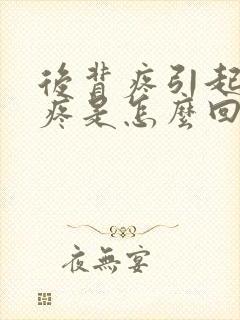 後背疼引起
疼是怎麼回
夜無宴